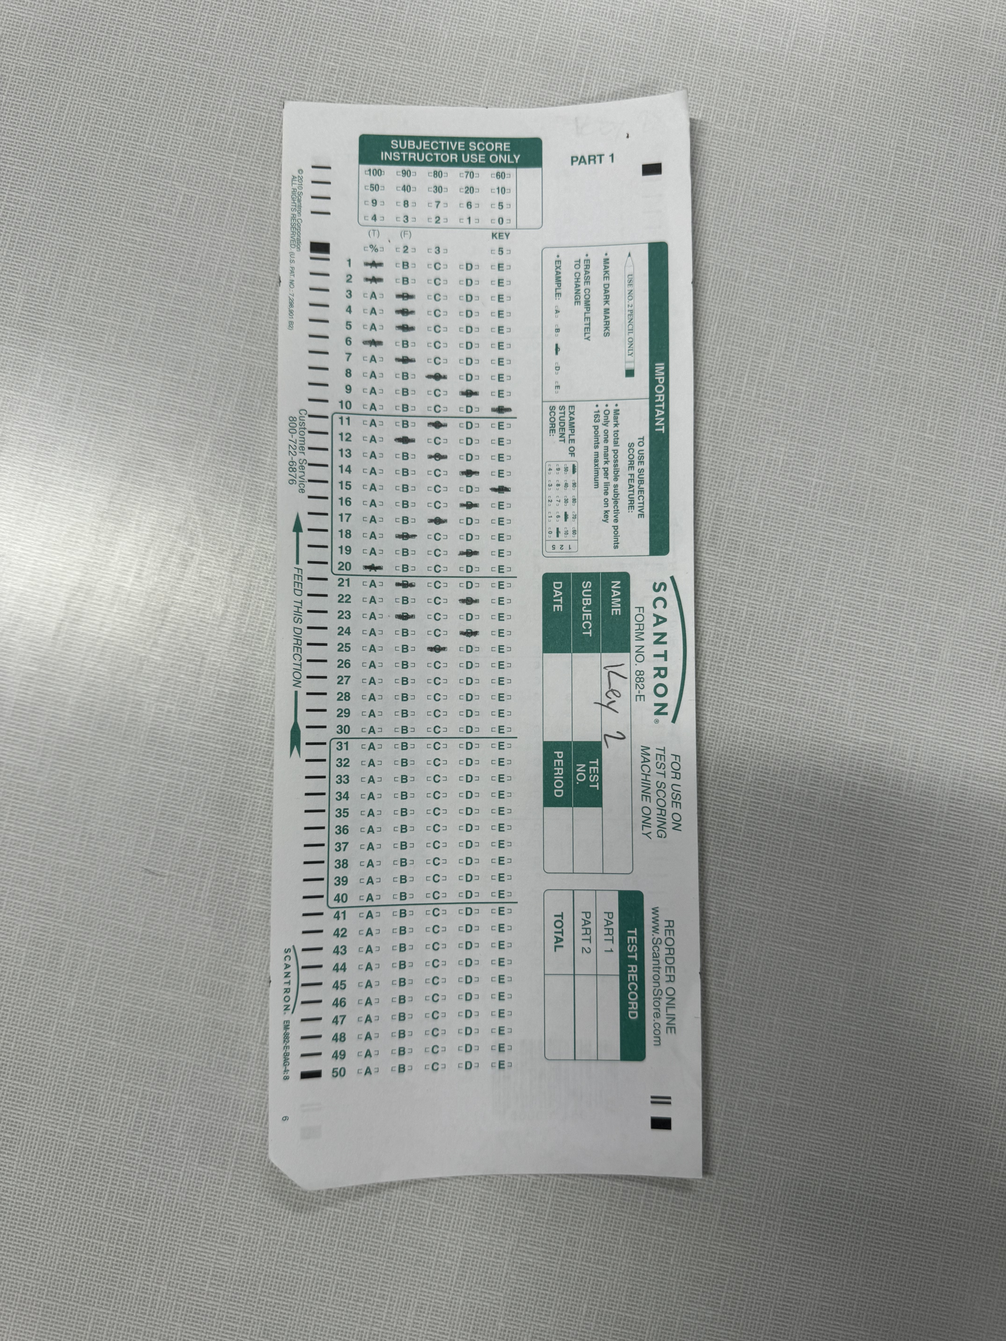 PART 1
SUBJECTIVE SCORE
INSTRUCTOR USE ONLY
100 90 80 70 60
50 40 30 20 10
9 8 7 6 5
4 3 2 1 0
(T) (F) KEY
% 2 3 5
1 A B C D E
2 A B C D E
3 A B C D E
4 A B C D E
5 A B C D E
6 A B C D E
7 A B C D E
8 A B C D E
9 A B C D E
10 A B C D E
11 A B C D E
12 A B C D E
13 A B C D E
14 A B C D E
15 A B C D E
16 A B C D E
17 A B C D E
18 A B C D E
19 A B C D E
20 A B C D E
21 A B C D E
22 A B C D E
23 A B C D E
24 A B C D E
25 A B C D E
26 A B C D E
27 A B C D E
28 A B C D E
29 A B C D E
30 A B C D E
31 A B C D E
32 A B C D E
33 A B C D E
34 A B C D E
35 A B C D E
36 A B C D E
37 A B C D E
38 A B C D E
39 A B C D E
40 A B C D E
41 A B C D E
42 A B C D E
43 A B C D E
44 A B C D E
45 A B C D E
46 A B C D E
47 A B C D E
48 A B C D E
49 A B C D E
50 A B C D E
IMPORTANT
USE NO. 2 PENCIL ONLY
• MAKE DARK MARKS
• ERASE COMPLETELY
TO CHANGE
• EXAMPLE: A B D E
TO USE SUBJECTIVE
SCORE FEATURE:
• Mark total possible subjective points
• Only one mark per line on key
• 163 points maximum
EXAMPLE OF
STUDENT
SCORE:
SCANTRON®
FORM NO. 882-E
FOR USE ON
TEST SCORING
MACHINE ONLY
NAME Key 2
SUBJECT
TEST
NO.
DATE
PERIOD
REORDER ONLINE
www.ScantronStore.com
TEST RECORD
PART 1
PART 2
TOTAL
© 2010 Scantron Corporation
ALL RIGHTS RESERVED.
Customer Service
800-722-6876
FEED THIS DIRECTION
SCANTRON.
6